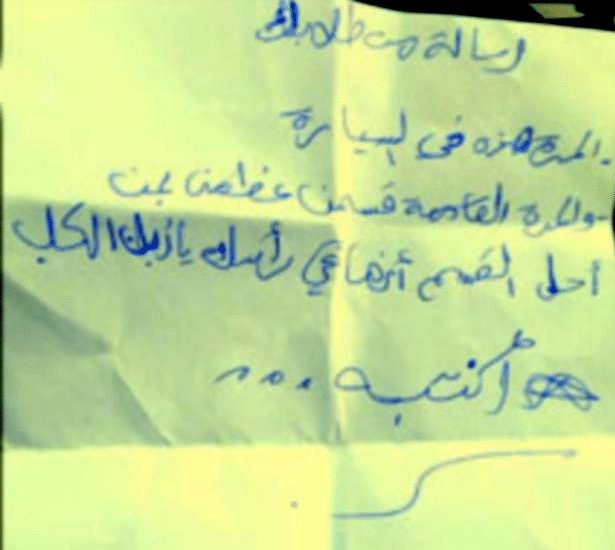 رسالة من طلابك
- المرة هذه في السيارة
- والمرة القادمة قسمن عظمن بمن
أحل القسم أنها في رأسك يا أيها الكلب
أكتبه ...